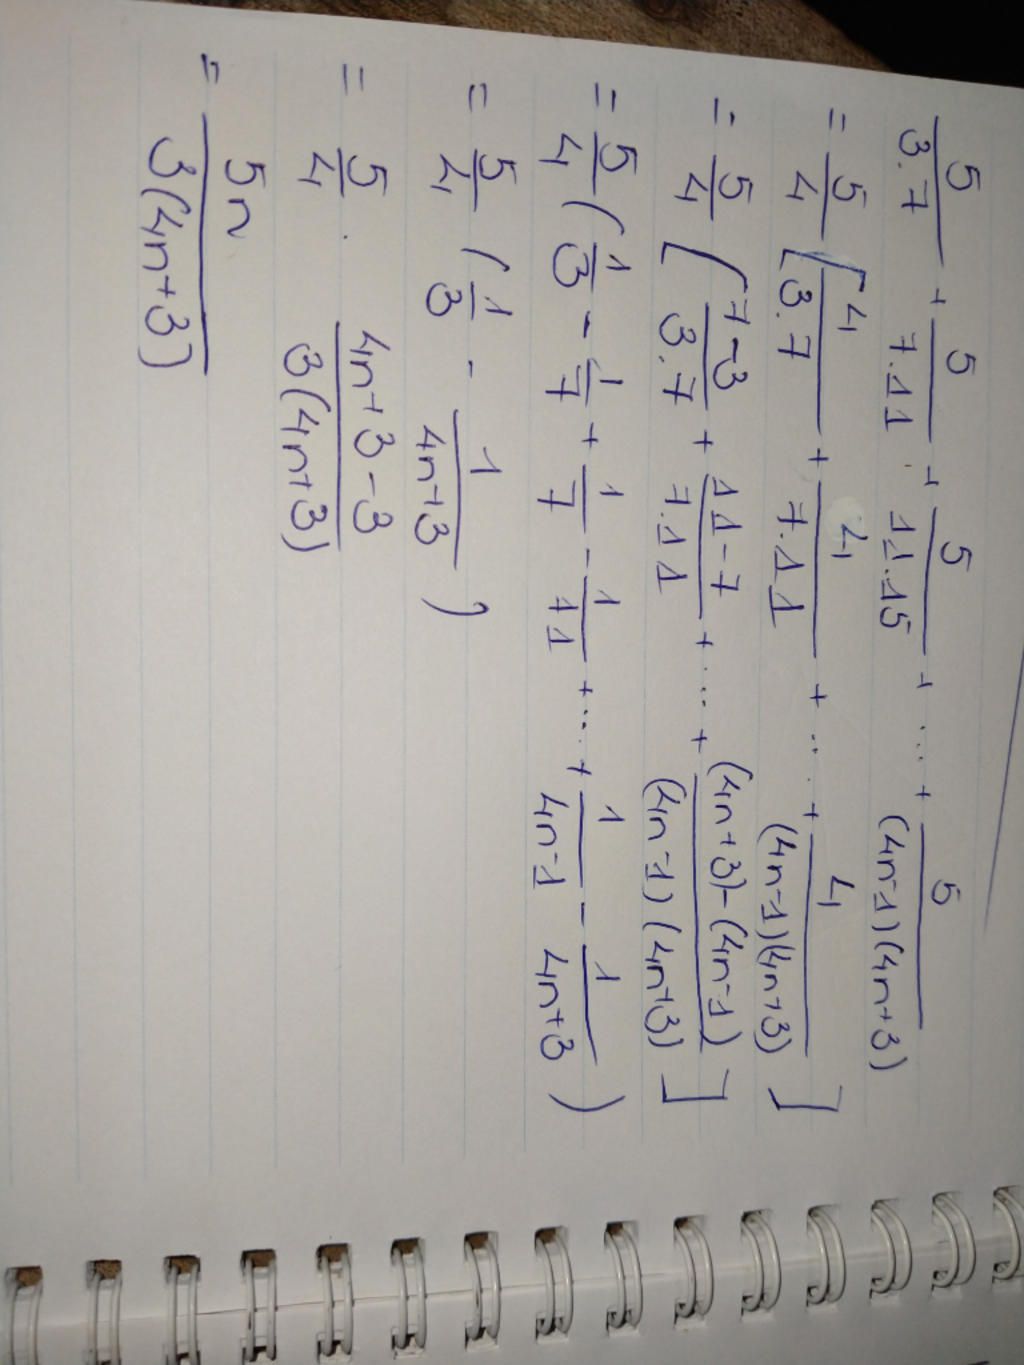 5/3.7 + 5/7.11 + 5/11.15 + ... + 5/(4n-1)(4n+3)
= 5/4 [4/3.7 + 4/7.11 + ... + 4/(4n-1)(4n+3)]
= 5/4 [7-3/3.7 + 11-7/7.11 + ... + (4n+3)-(4n-1)/(4n-1)(4n+3)]
= 5/4 (1/3 - 1/7 + 1/7 - 1/11 + ... + 1/4n-1 - 1/4n+3)
= 5/4 (1/3 - 1/4n+3)
= 5/4 . 4n+3-3/3(4n+3)
= 5n/3(4n+3)